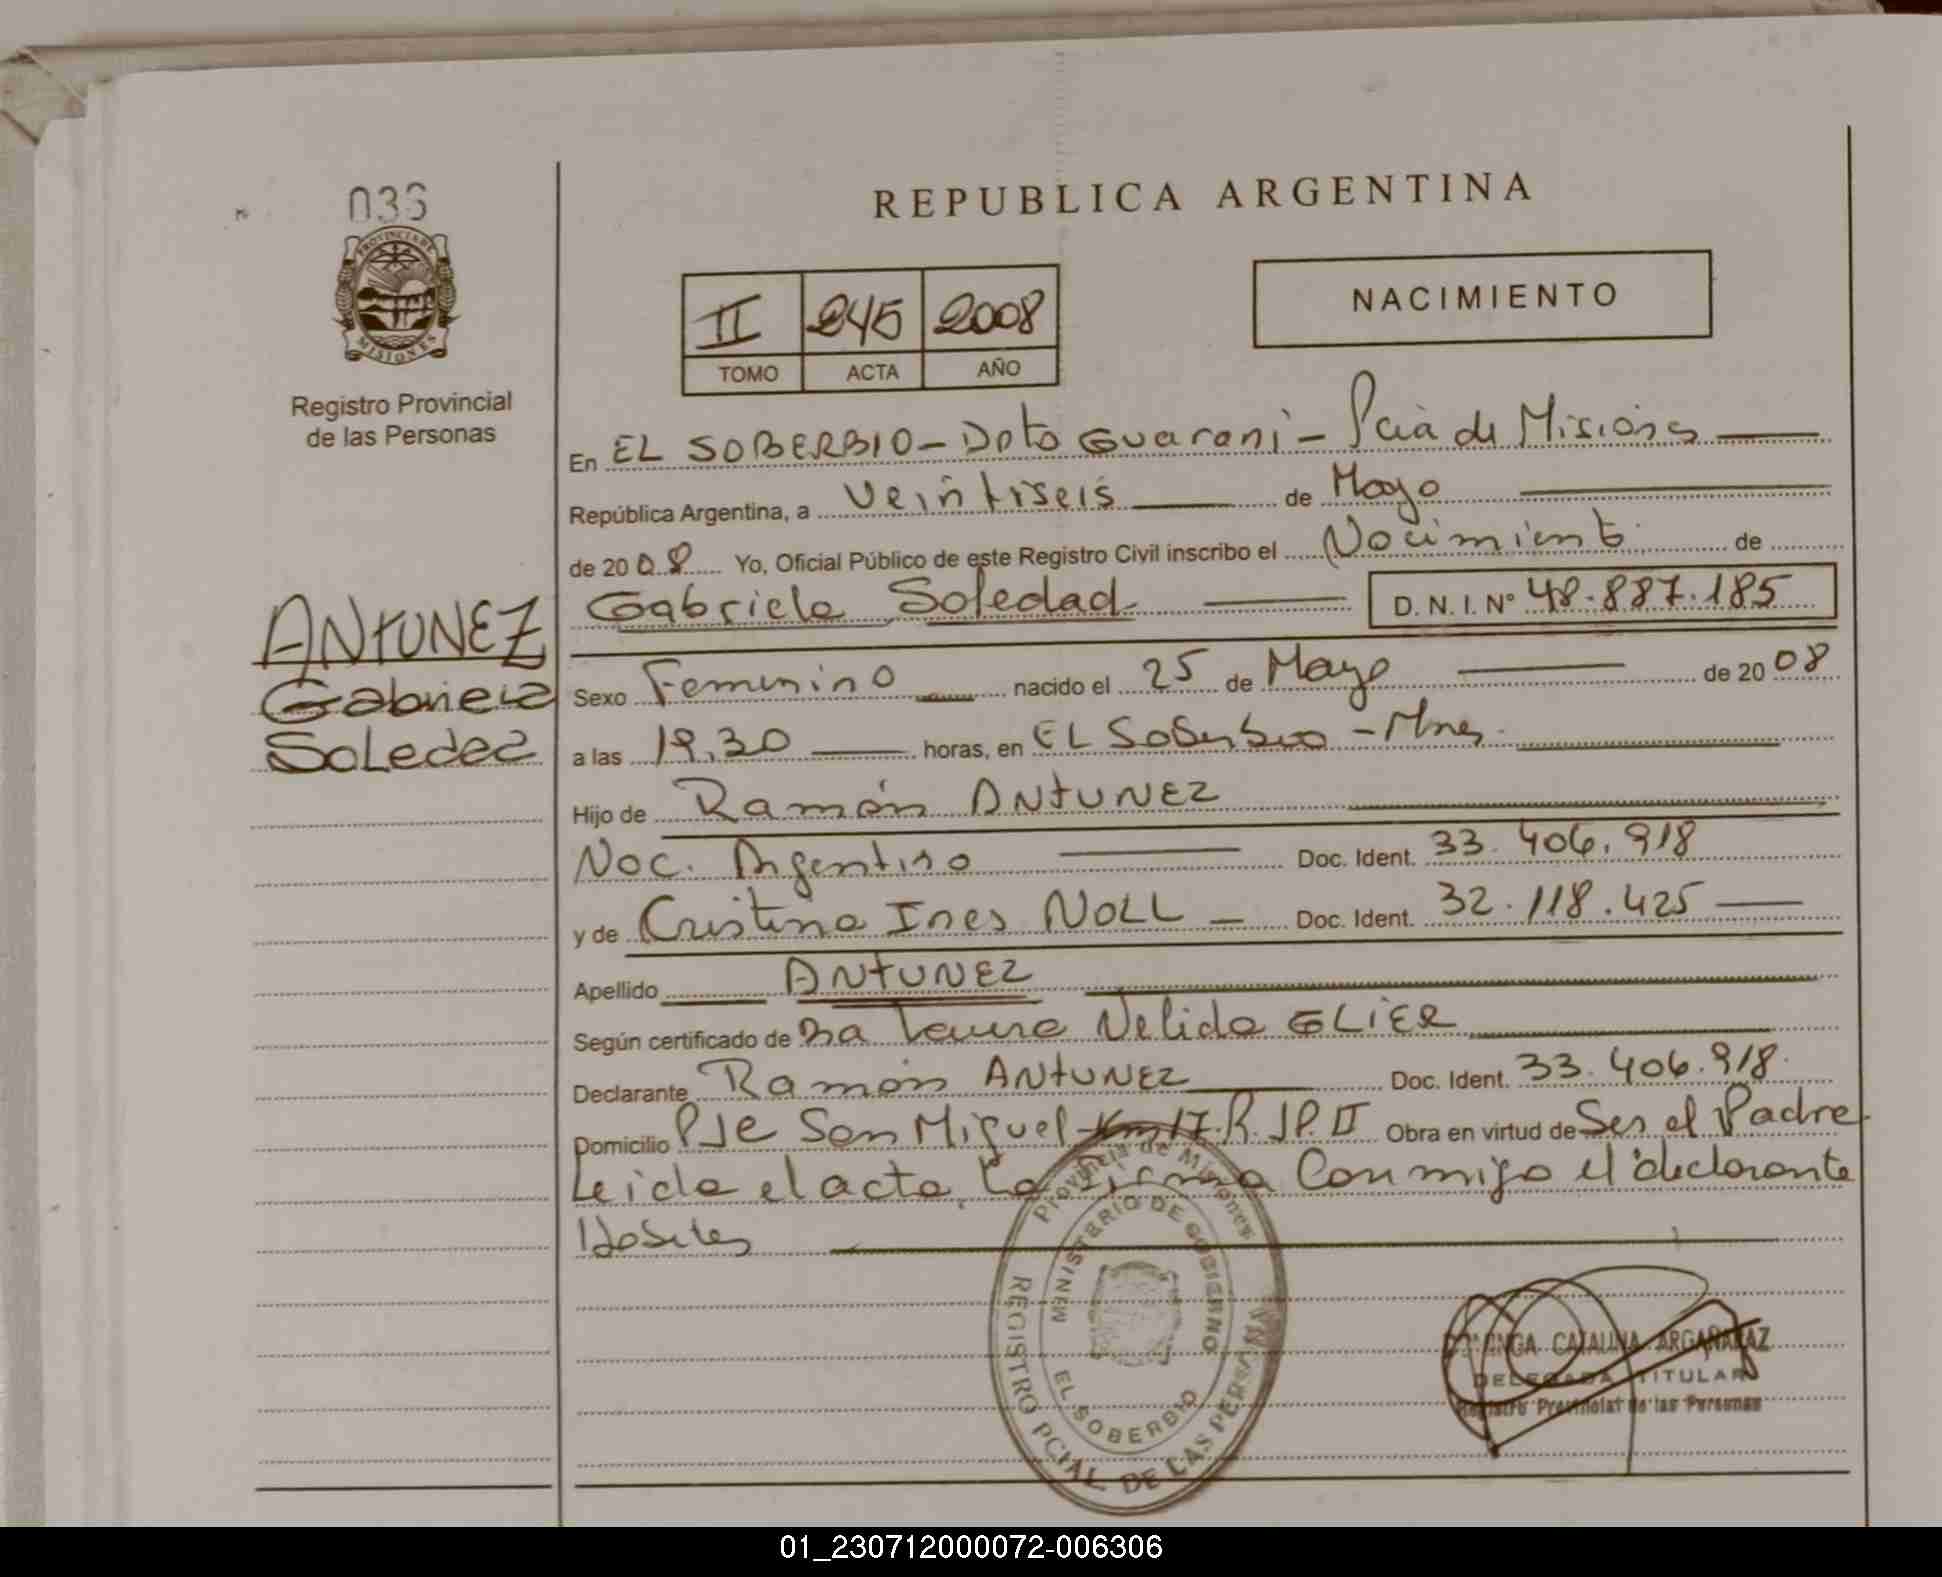 036
PROVINCIA DE
MISIONES
Registro Provincial
de las Personas
ANTUNEZ
Gabriela
Soledad
REPUBLICA ARGENTINA
II 245 2008
TOMO ACTA AÑO
NACIMIENTO
En EL SOBERBIO - Dpto Guarani - Pcia de Misiones
República Argentina, a veintiseis de Mayo
de 2008 Yo, Oficial Público de este Registro Civil inscribo el Nacimiento de
Gabriela Soledad D.N.I. Nº 48.887.185
Sexo Femenino nacido el 25 de Mayo de 2008
a las 19,30 horas, en EL Soberbio - Mnes.
Hijo de Ramón ANTUNEZ
Nac. Argentino Doc. Ident. 33.406.918
y de Cristina Ines NOLL - Doc. Ident. 32.118.425
Apellido ANTUNEZ
Según certificado de Dra Laura Nelida GLIER
Declarante Ramón ANTUNEZ Doc. Ident. 33.406.918.
Domicilio Pje San Miguel Km 17.R.JP.II Obra en virtud de Ser el Padre
Leida el acta, la firma Conmigo el declarante
Habiles
Provincia de Misiones
MINISTERIO DE GOBIERNO
EL SOBERBIO
REGISTRO PCIAL. DE LAS PERSONAS
DOMINGA CATALINA ARGAÑARAZ
DELEGADA TITULAR
Registro Provincial de las Personas
01_230712000072-006306